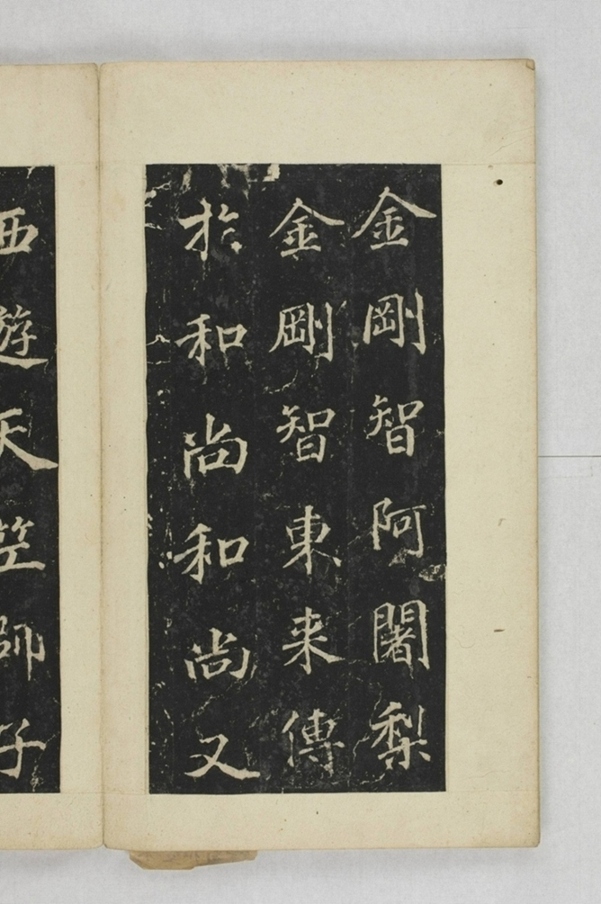 金剛智阿闍梨
金剛智東来傳
於和尚和尚又
西遊天笁師子